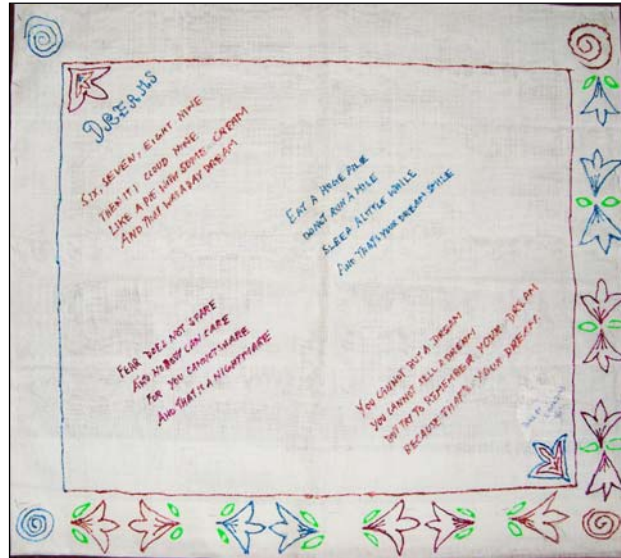 DREAMS
SIX, SEVEN, EIGHT NINE
THEN IT'S CLOUD NINE
LIKE A PIE WITH SOME CREAM
AND THAT WAS A DAY DREAM
EAT A HUGE PILE
DON'T RUN A MILE
SLEEP A LITTLE WHILE
AND THAT'S YOUR DREAM SMILE
FEAR DOES NOT SPARE
AND NOBODY CAN CARE
FOR YOU CANNOT SHARE
AND THAT IS A NIGHTMARE
YOU CANNOT BUY A DREAM
YOU CANNOT SELL A DREAM
DON'T TRY TO REMEMBER YOUR DREAM
BECAUSE THAT'S YOUR DREAM.